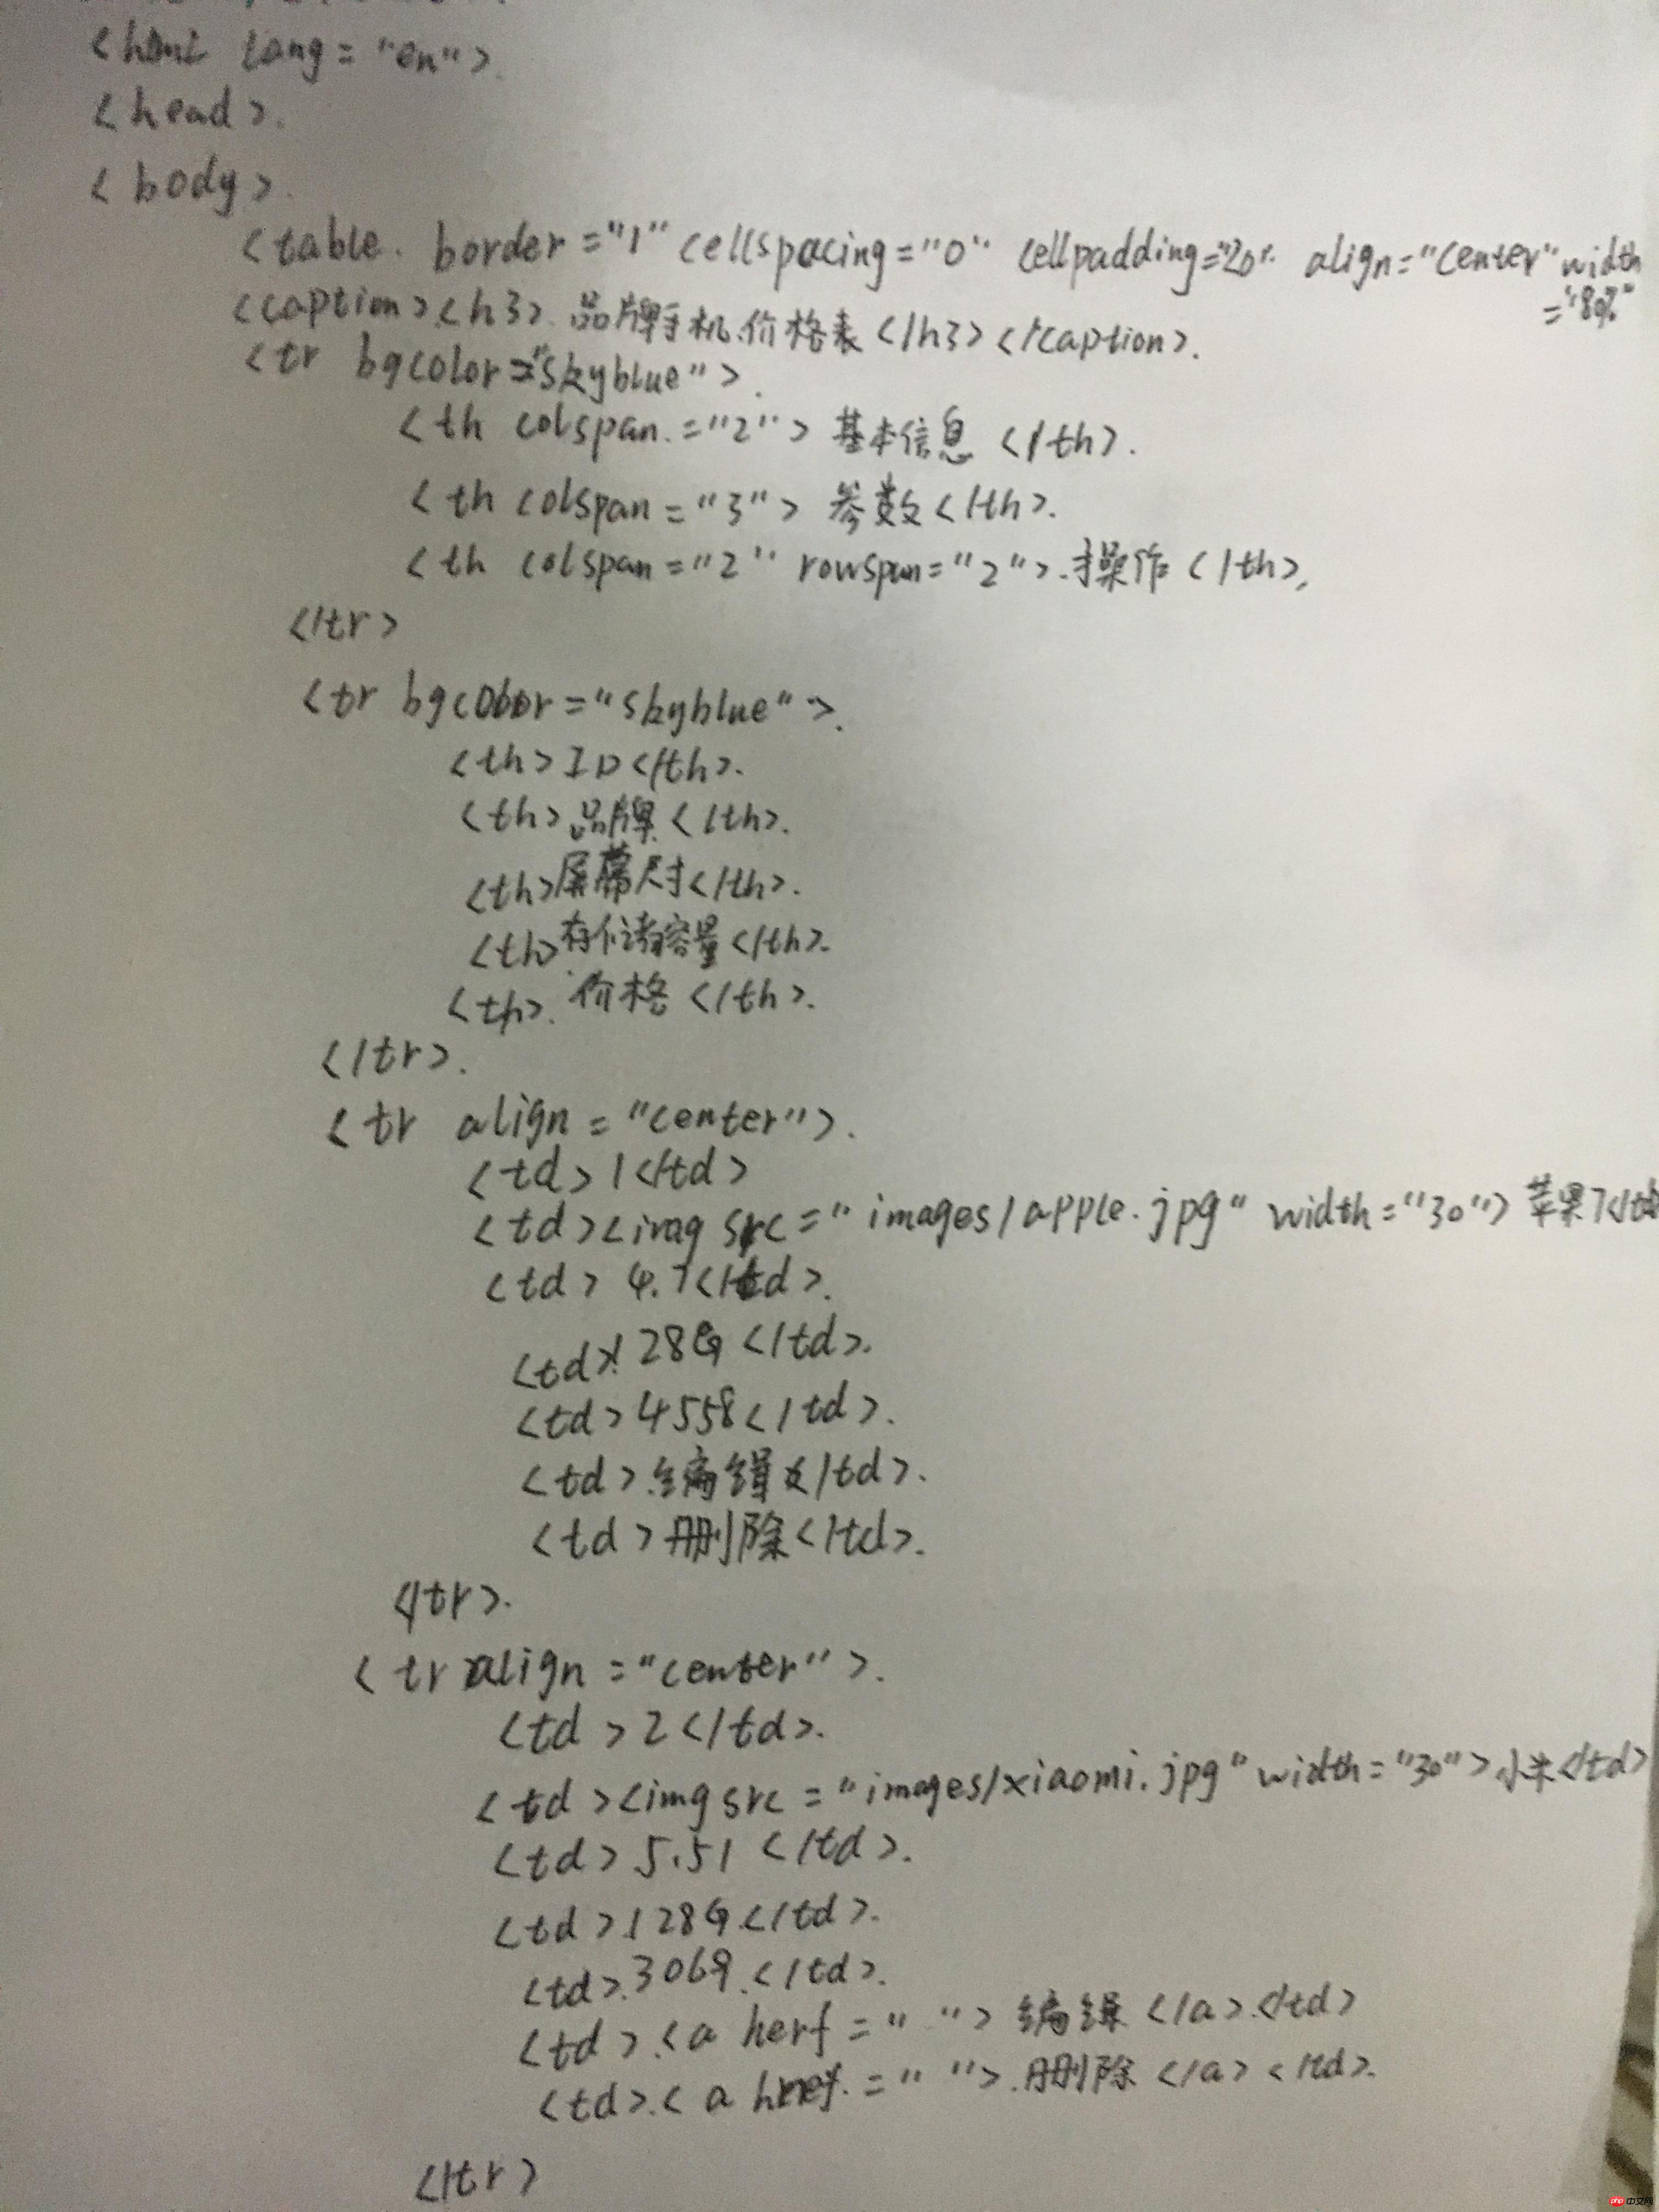 <html lang="en">
<head>
<body>
<table border="1" cellspacing="0" cellpadding="20" align="center" width
="80%"
<caption><h3>品牌手机价格表</h3></caption>
<tr bgcolor="skyblue">
<th colspan="2">基本信息</th>
<th colspan="3">参数</th>
<th colspan="2" rowspan="2">操作</th>
</tr>
<tr bgcolor="skyblue">
<th>ID</th>
<th>品牌</th>
<th>屏幕尺寸</th>
<th>存储容量</th>
<th>价格</th>
</tr>
<tr align="center">
<td>1</td>
<td><imag src="images/apple.jpg" width="30">苹果7</td
<td>4.7</td>
<td>128G</td>
<td>4558</td>
<td>编辑</td>
<td>删除</td>
</tr>
<tr align="center">
<td>2</td>
<td><img src="images/xiaomi.jpg" width="30">小米</td>
<td>5.51</td>
<td>128G</td>
<td>3069</td>
<td><a herf=" ">编辑</a></td>
<td><a href=" ">删除</a></td>
</tr>
php中文网